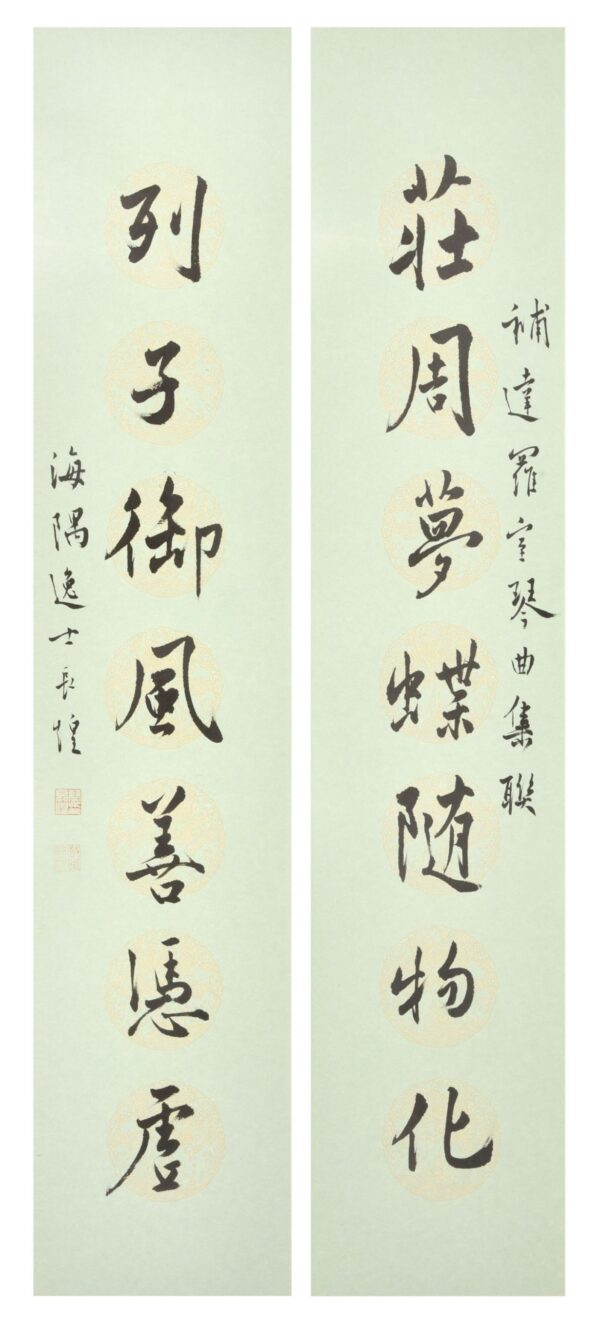 補達羅室琴曲集聯
莊周夢蝶随物化
列子御風善憑虛
海隅逸士長煌